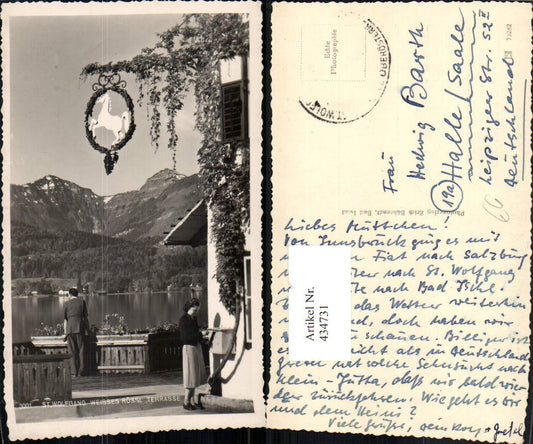 3001 ST. WOLFGANG WEISSES RÖSSL, TERRASSE
Echte
Photographie
ST. WOLFG
OBERÖSTERR
Photoverlag Erich Bährendt, Bad Ischl
Frau
Hedwig Barth
(19a) Halle/Saale
Leipziger Str. 52 II
Deutschland
66
Artikel Nr.
434731
Liebes Muttchen!
Von Innsbruck ging es mit
Fiat nach Salzburg
nach St. Wolfgang
nach Bad Ischl.
das Wasser weiterhin
doch haben wir
schauen. Billiger ist
nicht als in Deutschland
hat solche Sehnsucht nach
klein-Jutta, daß wir bald wie
der zurückfahren. Wie geht es Dir
und dem Heini?
Viele Grüße, Dein